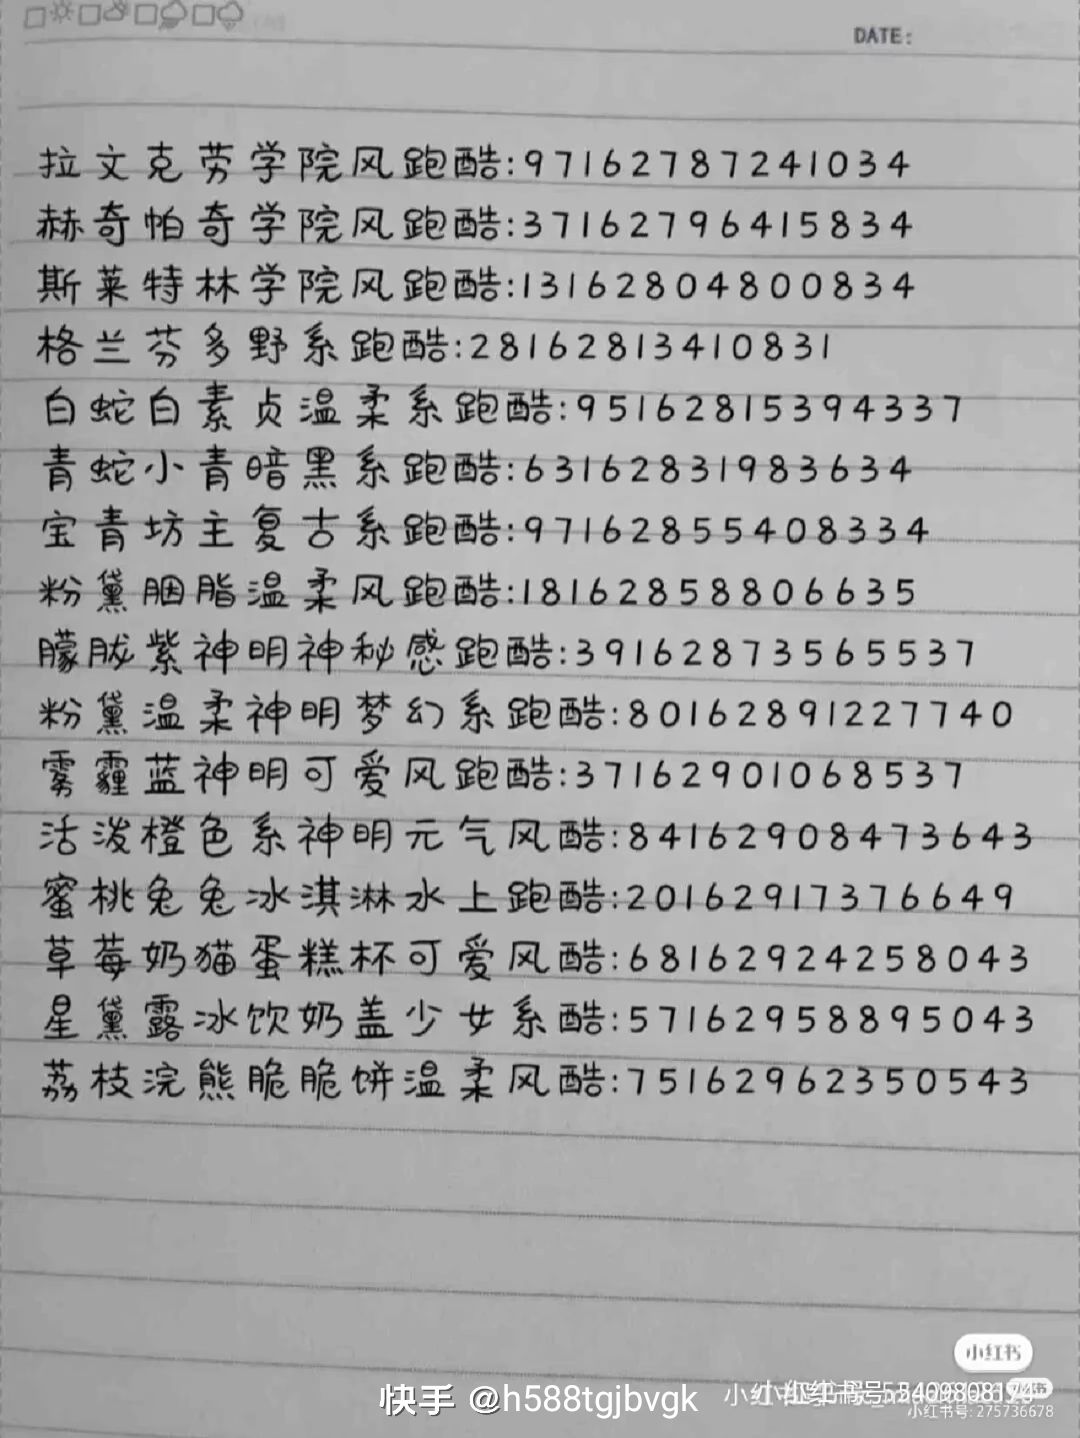 DATE:
拉文克劳学院风跑酷:97162787241034
赫奇帕奇学院风跑酷:37162796415834
斯莱特林学院风跑酷:13162804800834
格兰芬多野系跑酷:28162813410831
白蛇白素贞温柔系跑酷:95162815394337
青蛇小青暗黑系跑酷:63162831983634
宝青坊主复古系跑酷:97162855408334
粉黛胭脂温柔风跑酷:18162858806635
朦胧紫神明神秘感跑酷:39162873565537
粉黛温柔神明梦幻系跑酷:80162891227740
雾霾蓝神明可爱风跑酷:37162901068537
活泼橙色系神明元气风酷:84162908473643
蜜桃兔兔冰淇淋水上跑酷:20162917376649
草莓奶猫蛋糕杯可爱风酷:68162924258043
星黛露冰饮奶盖少女系酷:57162958895043
荔枝浣熊脆脆饼温柔风酷:75162962350543
小红书
快手 @h588tgjbvgk
小红书号: 275736678